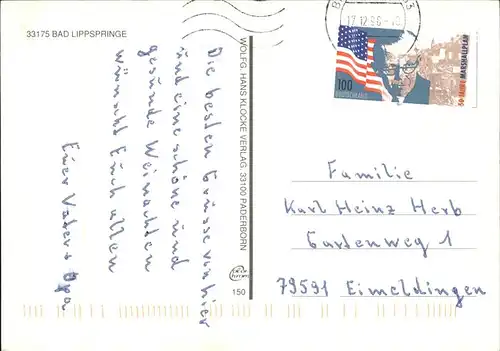 33175 BAD LIPPSPRINGE
Die besten Grüsse von hier
und eine schöne und
gesunde Weinachten
wünscht Euch allen
Euer Vater u Opa
WOLFG. HANS KLOCKE VERLAG, 33100 PADERBORN
150
12.12.96
100
DEUTSCHLAND
50 JAHRE MARSHALLPLAN
Familie
Karl Heinz Herb
Gartenweg 1
79591 Eimeldingen